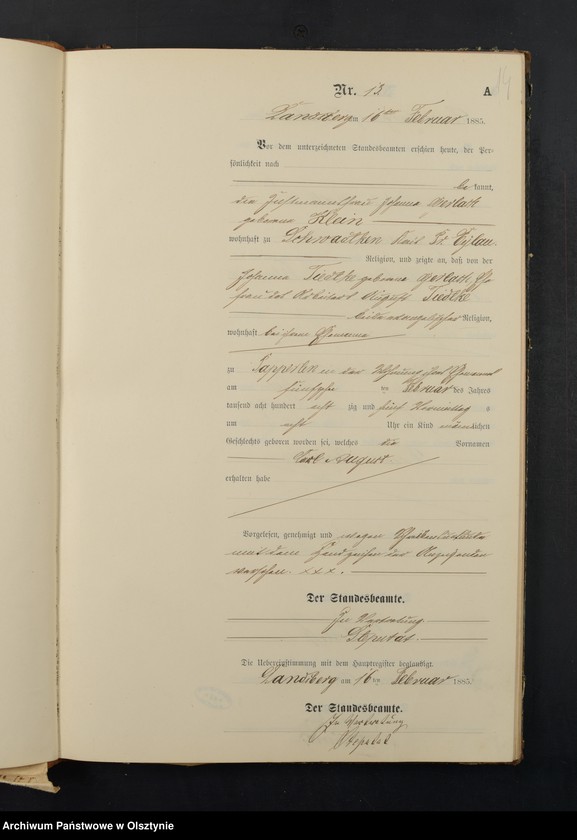 14
Nr. 13. A
Landsberg am 16ten Februar 1885.
Vor dem unterzeichneten Standesbeamten erschien heute, der Per-
sönlichkeit nach
be kannt,
die Johanna Gerlach
geborene Klein
wohnhaft zu Schwadtken Kreis Pr. Eylau.
Religion, und zeigte an, daß von der
Johanna Tiedtke geborene Gerlach Ehe
frau des Arbeiters August Tiedtke
beide evangelischer Religion,
wohnhaft bei ihrem Ehemanne
zu in der Wohnung ihres Ehemannes
am fünfzehn ten Februar des Jahres
tausend acht hundert acht zig und fünf Vormittags
um acht Uhr ein Kind männlichen
Geschlechts geboren worden sei, welches die Vornamen
Karl August
erhalten habe
Vorgelesen, genehmigt und wegen
mit dem Handzeichen der
versehen. x x x.
Der Standesbeamte.
In Vertretung
Die Uebereinstimmung mit dem Hauptregister beglaubigt.
Landsberg am 16 ten Februar 1885.
Der Standesbeamte.
In Vertretung
Archiwum Państwowe w Olsztynie